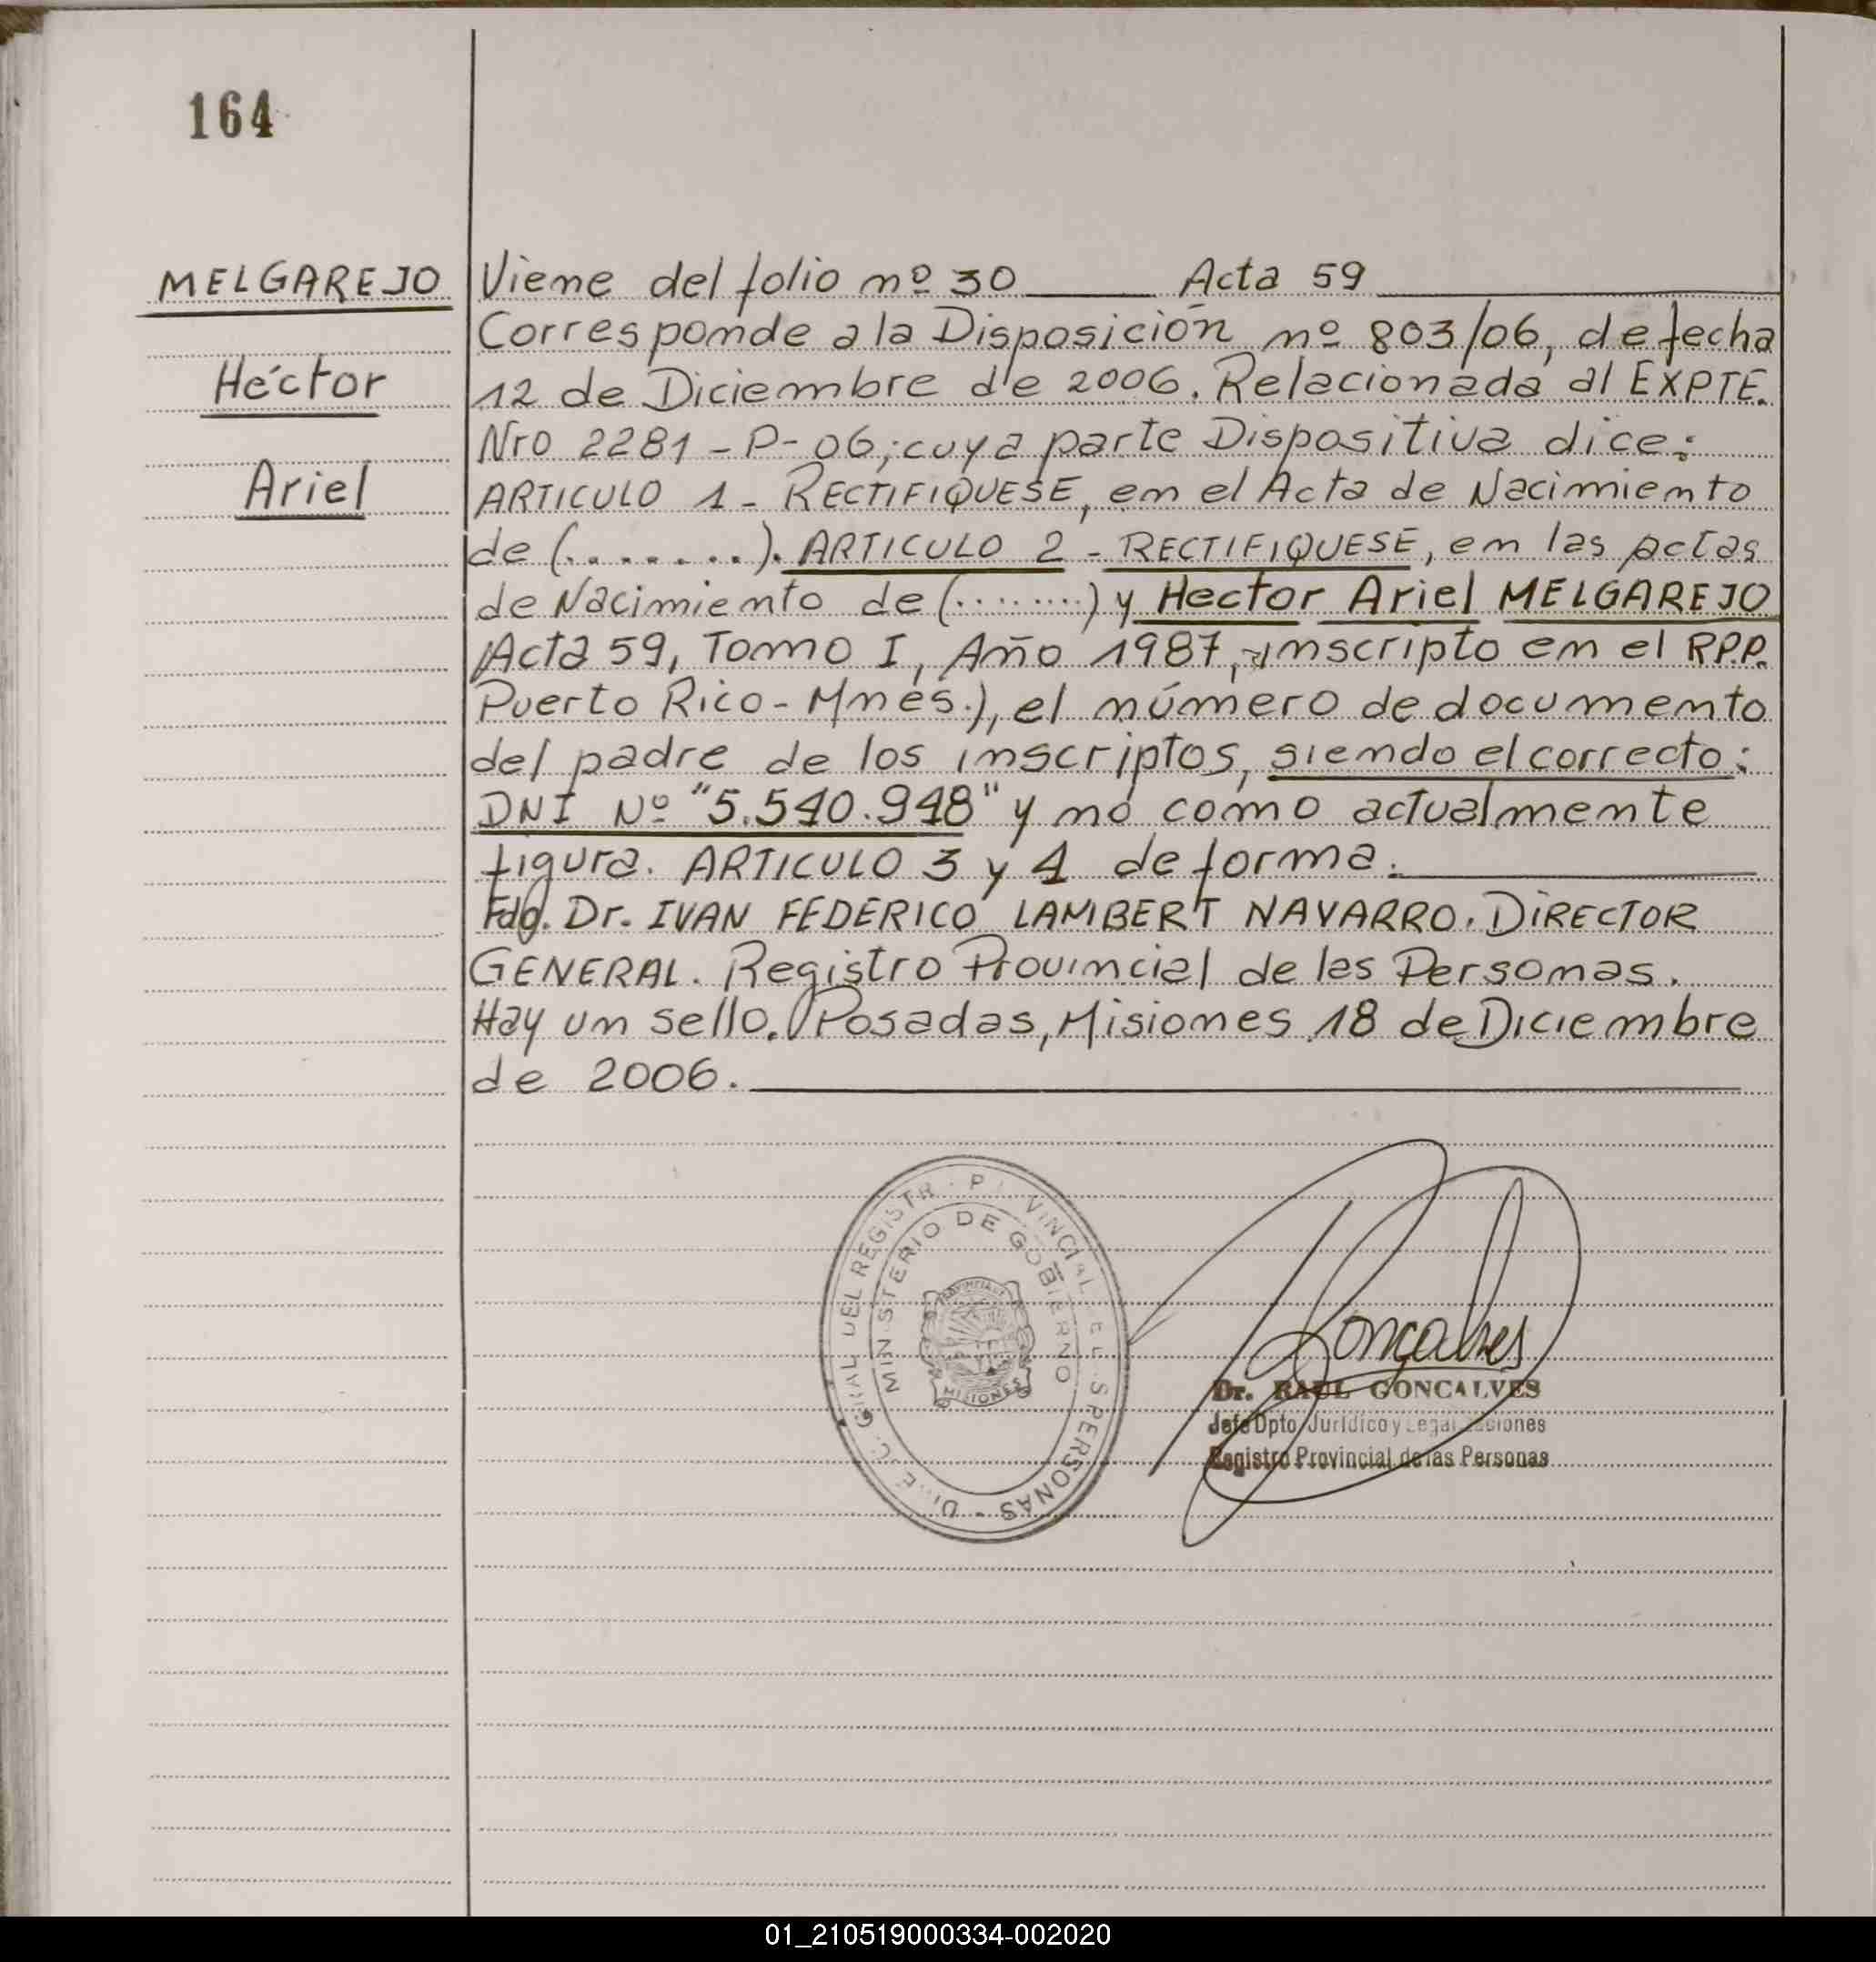 164
MELGAREJO
Héctor
Ariel
Viene del folio nº 30 Acta 59
Corresponde a la Disposición nº 803/06, de fecha
12 de Diciembre de 2006. Relacionada al EXPTE.
Nro 2281-P-06; cuya parte Dispositiva dice:
ARTICULO 1- RECTIFIQUESE, en el Acta de Nacimiento
de (........). ARTICULO 2 - RECTIFIQUESE, en las actas
de Nacimiento de (........) y Hector Ariel MELGAREJO
(Acta 59, Tomo I, Año 1987, inscripto en el R.P.P.
Puerto Rico - Mnes.), el número de documento
del padre de los inscriptos, siendo el correcto:
DNI Nº "5.540.948" y no como actualmente
figura. ARTICULO 3 y 4 de forma.
Fdo. Dr. IVAN FEDERICO LAMBERT NAVARRO. DIRECTOR
GENERAL. Registro Provincial de las Personas.
Hay un sello. Posadas, Misiones 18 de Diciembre
de 2006.
MINISTERIO DE GOBIERNO
MISIONES
Goncalves
Dr. RAUL GONCALVES
Jefe Dpto. Jurídico y Legalizaciones
Registro Provincial de las Personas
01_210519000334-002020